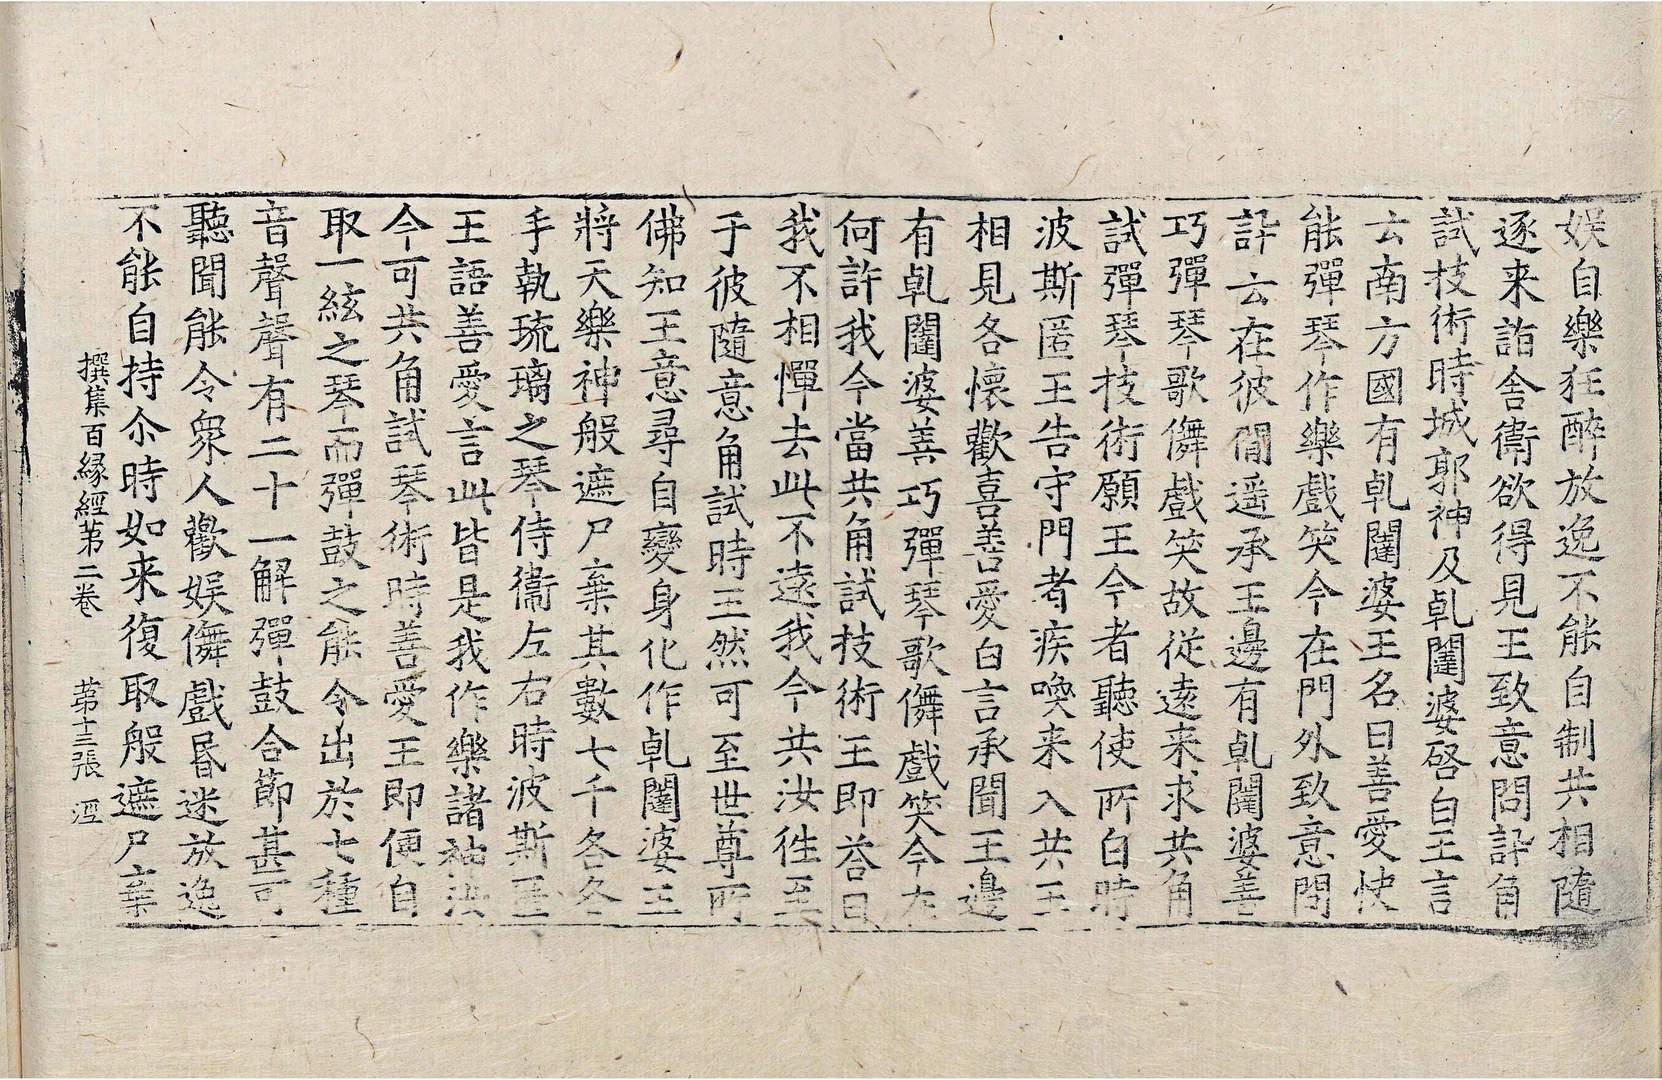 娛自樂狂醉放逸不能自制共相隨
逐来詣舍衛欲得見王致意問訃角
試技術時城郭神及乹闥婆啓白王言
云南方國有乹闥婆王名曰善愛快
能彈琴作樂戲笑今在門外致意問
訃云在彼間遥承王邊有乹闥婆善
巧彈琴歌儛戲笑故従遠来求共角
試彈琴技術願王今者聽使所白時
波斯匿王告守門者疾喚来入共王
相見各懷歡喜善愛白言承聞王邊
有乹闥婆善巧彈琴歌儛戲笑今在
何許我今當共角試技術王即荅曰
我不相憚去此不遠我今共汝徃至
于彼隨意角試時王然可至世尊所
佛知王意尋自變身化作乹闥婆王
將天樂神般遮尸棄其數七千各各
手執琉璃之琴侍衞左右時波斯匿
王語善愛言此皆是我作樂諸神汝
今可共角試琴術時善愛王即便自
取一絃之琴而彈鼓之能令出於七種
音聲聲有二十一解彈鼓合節甚可
聽聞能令衆人歡娛儛戲昬迷放逸
不能自持尒時如来復取般遮尸棄
撰集百縁經第二卷 第十三張 溼